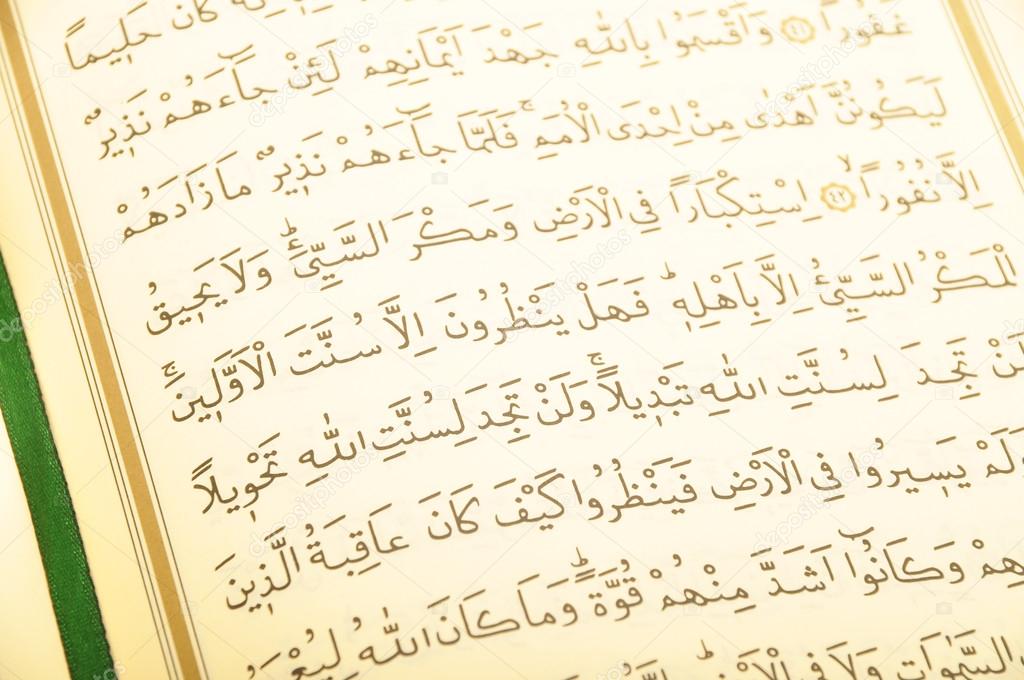 كَانَ حَلِيماً
غَفُوراً ﴿٤١﴾ وَاَقْسَمُوا بِاللّٰهِ جَهْدَ اَيْمَانِهِمْ لَئِنْ جَٓاءَهُمْ نَذ۪يرٌ
لَيَكُونُنَّ اَهْدٰى مِنْ اِحْدَى الْاُمَمِۚ فَلَمَّا جَٓاءَهُمْ نَذ۪يرٌ مَا زَادَهُمْ
اِلَّا نُفُوراًۙ ﴿٤٢﴾ اِسْتِكْبَاراً فِي الْاَرْضِ وَمَكْرَ السَّيِّئِۜ وَلَا يَح۪يقُ
الْمَكْرُ السَّيِّئُ اِلَّا بِاَهْلِه۪ۜ فَهَلْ يَنْظُرُونَ اِلَّا سُنَّتَ الْاَوَّل۪ينَۚ
لَنْ تَجِدَ لِسُنَّتِ اللّٰهِ تَبْد۪يلاًۚ وَلَنْ تَجِدَ لِسُنَّتِ اللّٰهِ تَحْو۪يلاً
وَلَمْ يَس۪يرُوا فِي الْاَرْضِ فَيَنْظُرُوا كَيْفَ كَانَ عَاقِبَةُ الَّذ۪ينَ
هِمْ وَكَانُٓوا اَشَدَّ مِنْهُمْ قُوَّةًۜ وَمَا كَانَ اللّٰهُ لِيُعْ
السَّمٰوَاتِ وَلَا فِي الْاَرْضِۜ
depositphotos